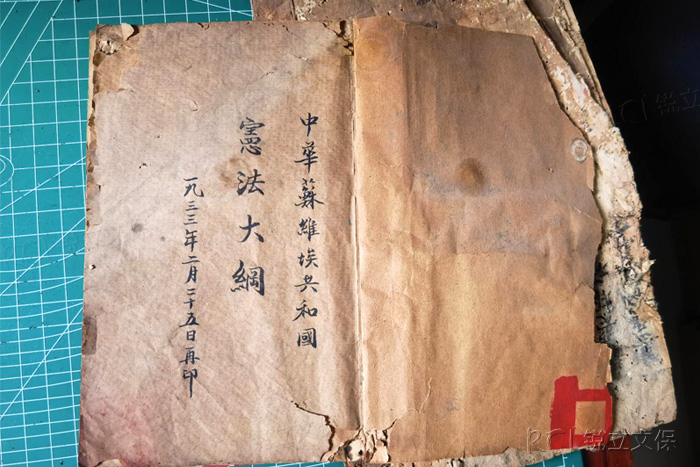 中華蘇維埃共和國
憲法大綱
一九三三年二月二十五日再印
RCI 锐立文保